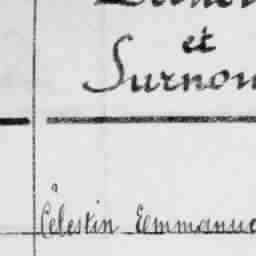 et
Surnom
Célestin Eemmanue